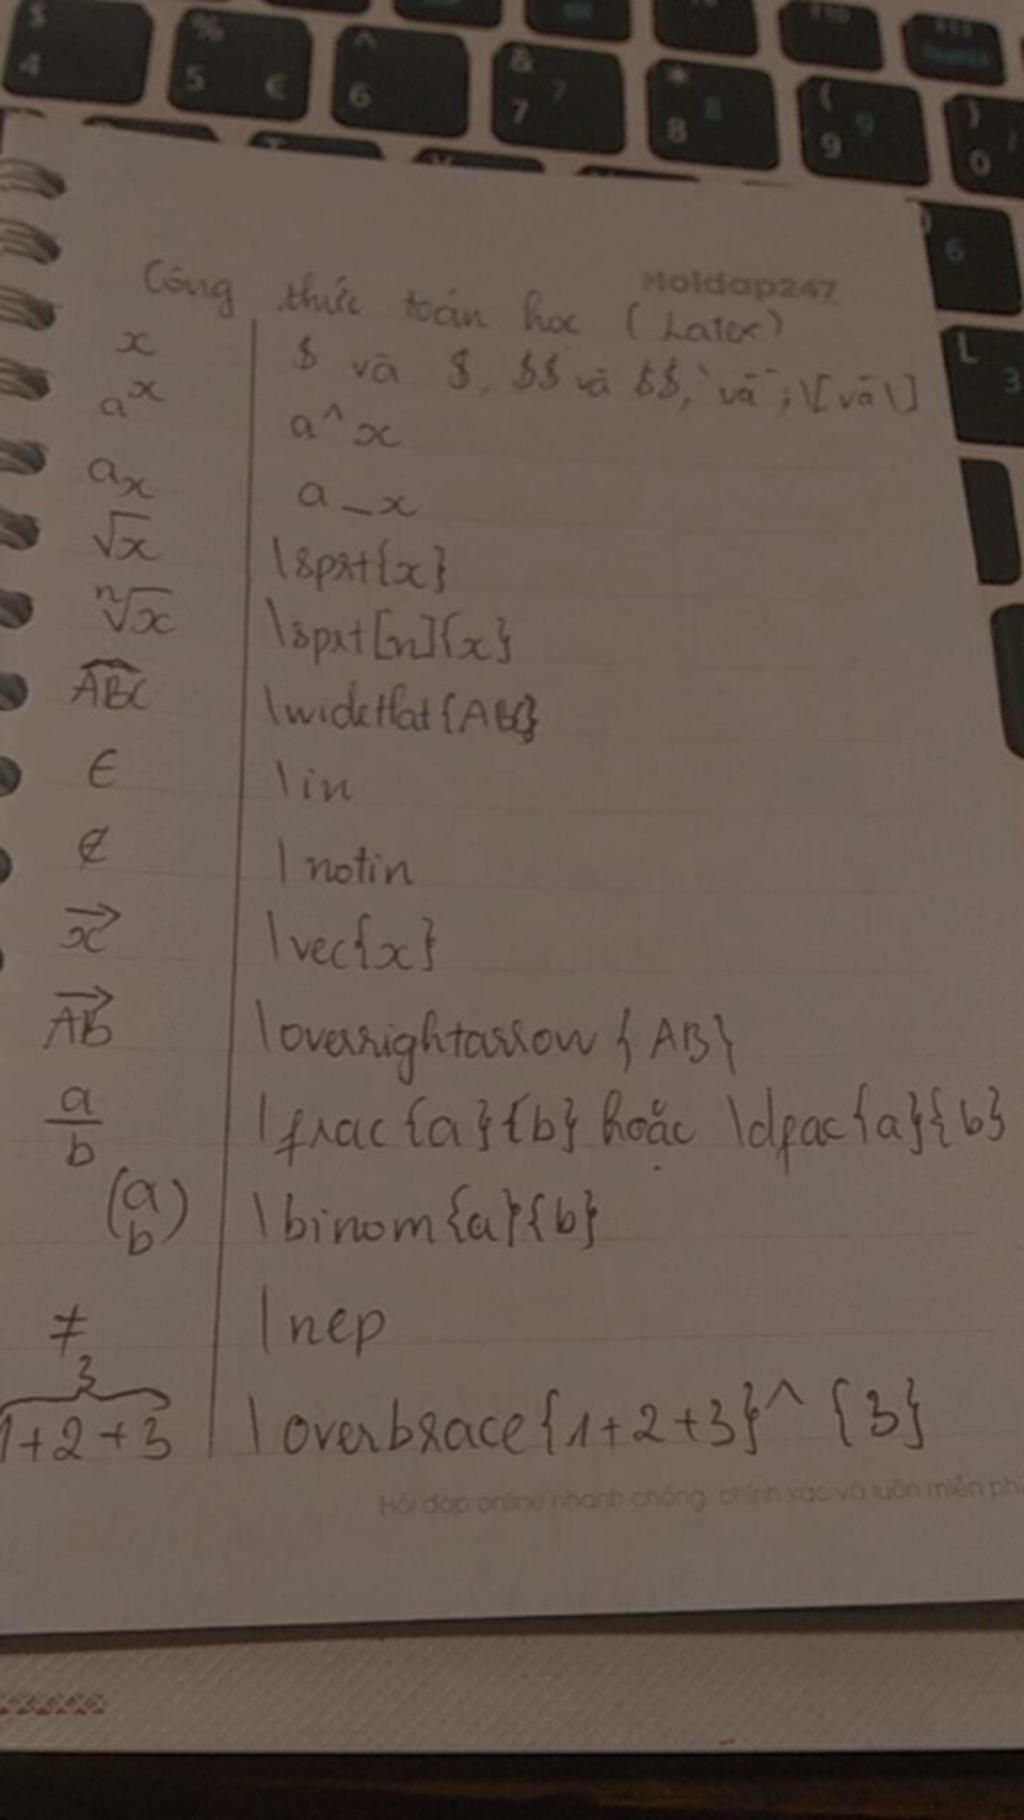 $ 4
% 5 €
^ 6
& 7 7
* 8 8
( 9 9
) 0 /
6
L 3
Hoidap247
Công thức toán học (Latex)
x $ và $, $$ và $$, ` và `; \[ và \]
a^x a^x
a_x a_x
√x \sqrt{x}
ⁿ√x \sqrt[n]{x}
\widehat{ABC} \widethat{ABC}
∈ \in
∉ \notin
\vec{x} \vec{x}
\overrightarrow{AB} \overrightarrow{AB}
a/b \frac{a}{b} hoặc \dfac{a}{b}
(a b) \binom{a}{b}
≠ \neq
3
1+2+3 \overbrace{1+2+3}^{3}
Hỏi đáp online nhanh chóng, chính xác và luôn miễn phí